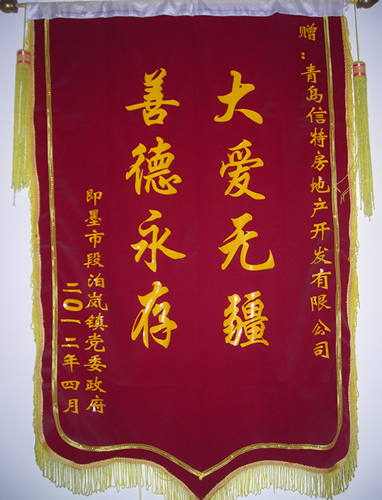 赠：青岛信特房地产开发有限公司
大爱无疆
善德永存
即墨市段泊岚镇党委政府
二〇一二年四月